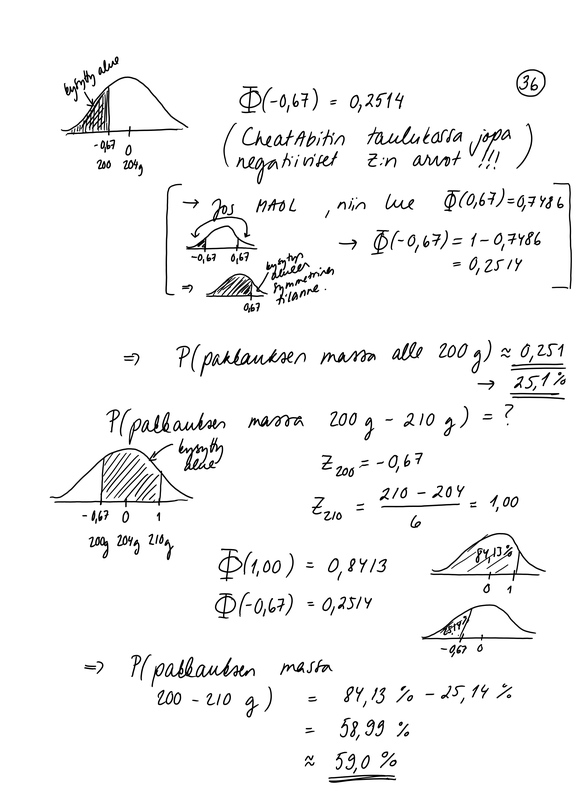 36
kysytty alue
-0,67 0
200 204g
Φ(-0,67) = 0,2514
(CheatAbitin taulukossa jopa
negatiiviset z:n arvot !!!)
→ Jos MAOL, niin lue Φ(0,67)=0,7486
-0,67 0,67
→ Φ(-0,67) = 1-0,7486
= 0,2514
⇒
kysytyn
alueen
symmetrinen
tilanne.
0,67
⇒ P(pakkauksen massa alle 200 g) ≈ 0,251
→ 25,1 %
P(pakkauksen massa 200 g - 210 g) = ?
kysytty
alue
-0,67 0 1
200g 204g 210g
Z200 = -0,67
Z210 = (210 - 204)/6 = 1,00
Φ(1,00) = 0,8413
84,13%
0 1
Φ(-0,67) = 0,2514
25,14%
-0,67 0
⇒ P(pakkauksen massa
200 - 210 g) = 84,13 % - 25,14 %
= 58,99 %
≈ 59,0 %